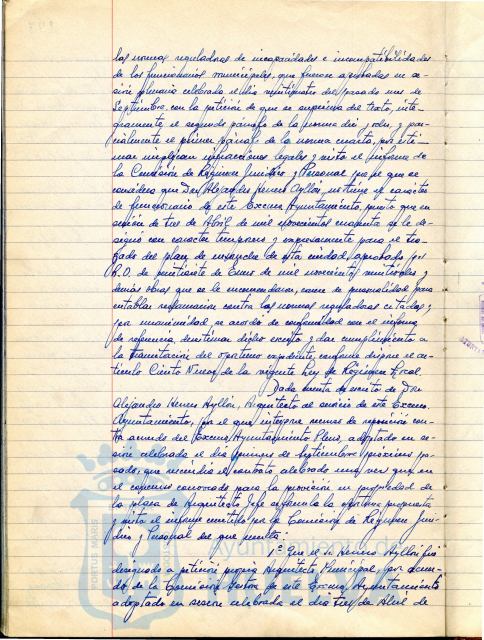 las normas reguladoras de incapacidades e incompatibilidades
de los funcionarios municipales, que fueron aprobadas en se-
sión plenaria celebrada el dia veintiquatro del pasado mes de
Septiembre, con la petición de que se suprima del texto, inte-
gramente el segundo párrafo de la norma y par-
cialmente el primer párrafo de la norma cuarta, por esti-
mar implican infracciones legales y visto el informe de
la Comisión de Régimen Jurídico y Personal por el que se
considera que Don Alejandro Herrero Ayllón, no tiene el carácter
de funcionario de este Excmo Ayuntamiento, puesto que en
sesión de tres de Abril de mil novecientos cuarenta se le de-
signó con carácter temporero y expresamente para el tra-
zado del plan de ensanche de esta ciudad, aprobado por
R.O. de de Enero de mil novecientos y
demás obras que se le encomendaran, carece de personalidad para
entablar reclamación contra las normas reguladoras citadas,
por unanimidad, se acordó de conformidad con el informe
de referencia, desestimar dicho escrito y dar cumplimiento a
la tramitación del oportuno expediente, conforme dispone el ar-
tículo Ciento Nueve de la vigente Ley de Régimen Local.
Dada cuenta de escrito de Don
Alejandro Herrero Ayllón, Arquitecto al servicio de este Excmo.
Ayuntamiento, por el que interpone recurso de reposición con-
tra acuerdo del Excmo Ayuntamiento Pleno, adoptado en se-
sión celebrada el dia primero de Septiembre próximo pa-
sado, que rescindió el contrato celebrado una vez que en
el concurso convocado para la provisión en propiedad de
la plaza de Arquitecto Jefe se formula la oportuna propuesta
y visto el informe emitido por la Comisión de Régimen Jurí-
dico y Personal en que resulta:
Que el Sr Herrero Ayllón fué
designado a petición propia Arquitecto Municipal, por acuer-
do de la Comisión Gestora de este Excmo Ayuntamiento
adoptado en sesión celebrada el dia tres de Abril de
PORTUS MARIS
Ayuntamiento de